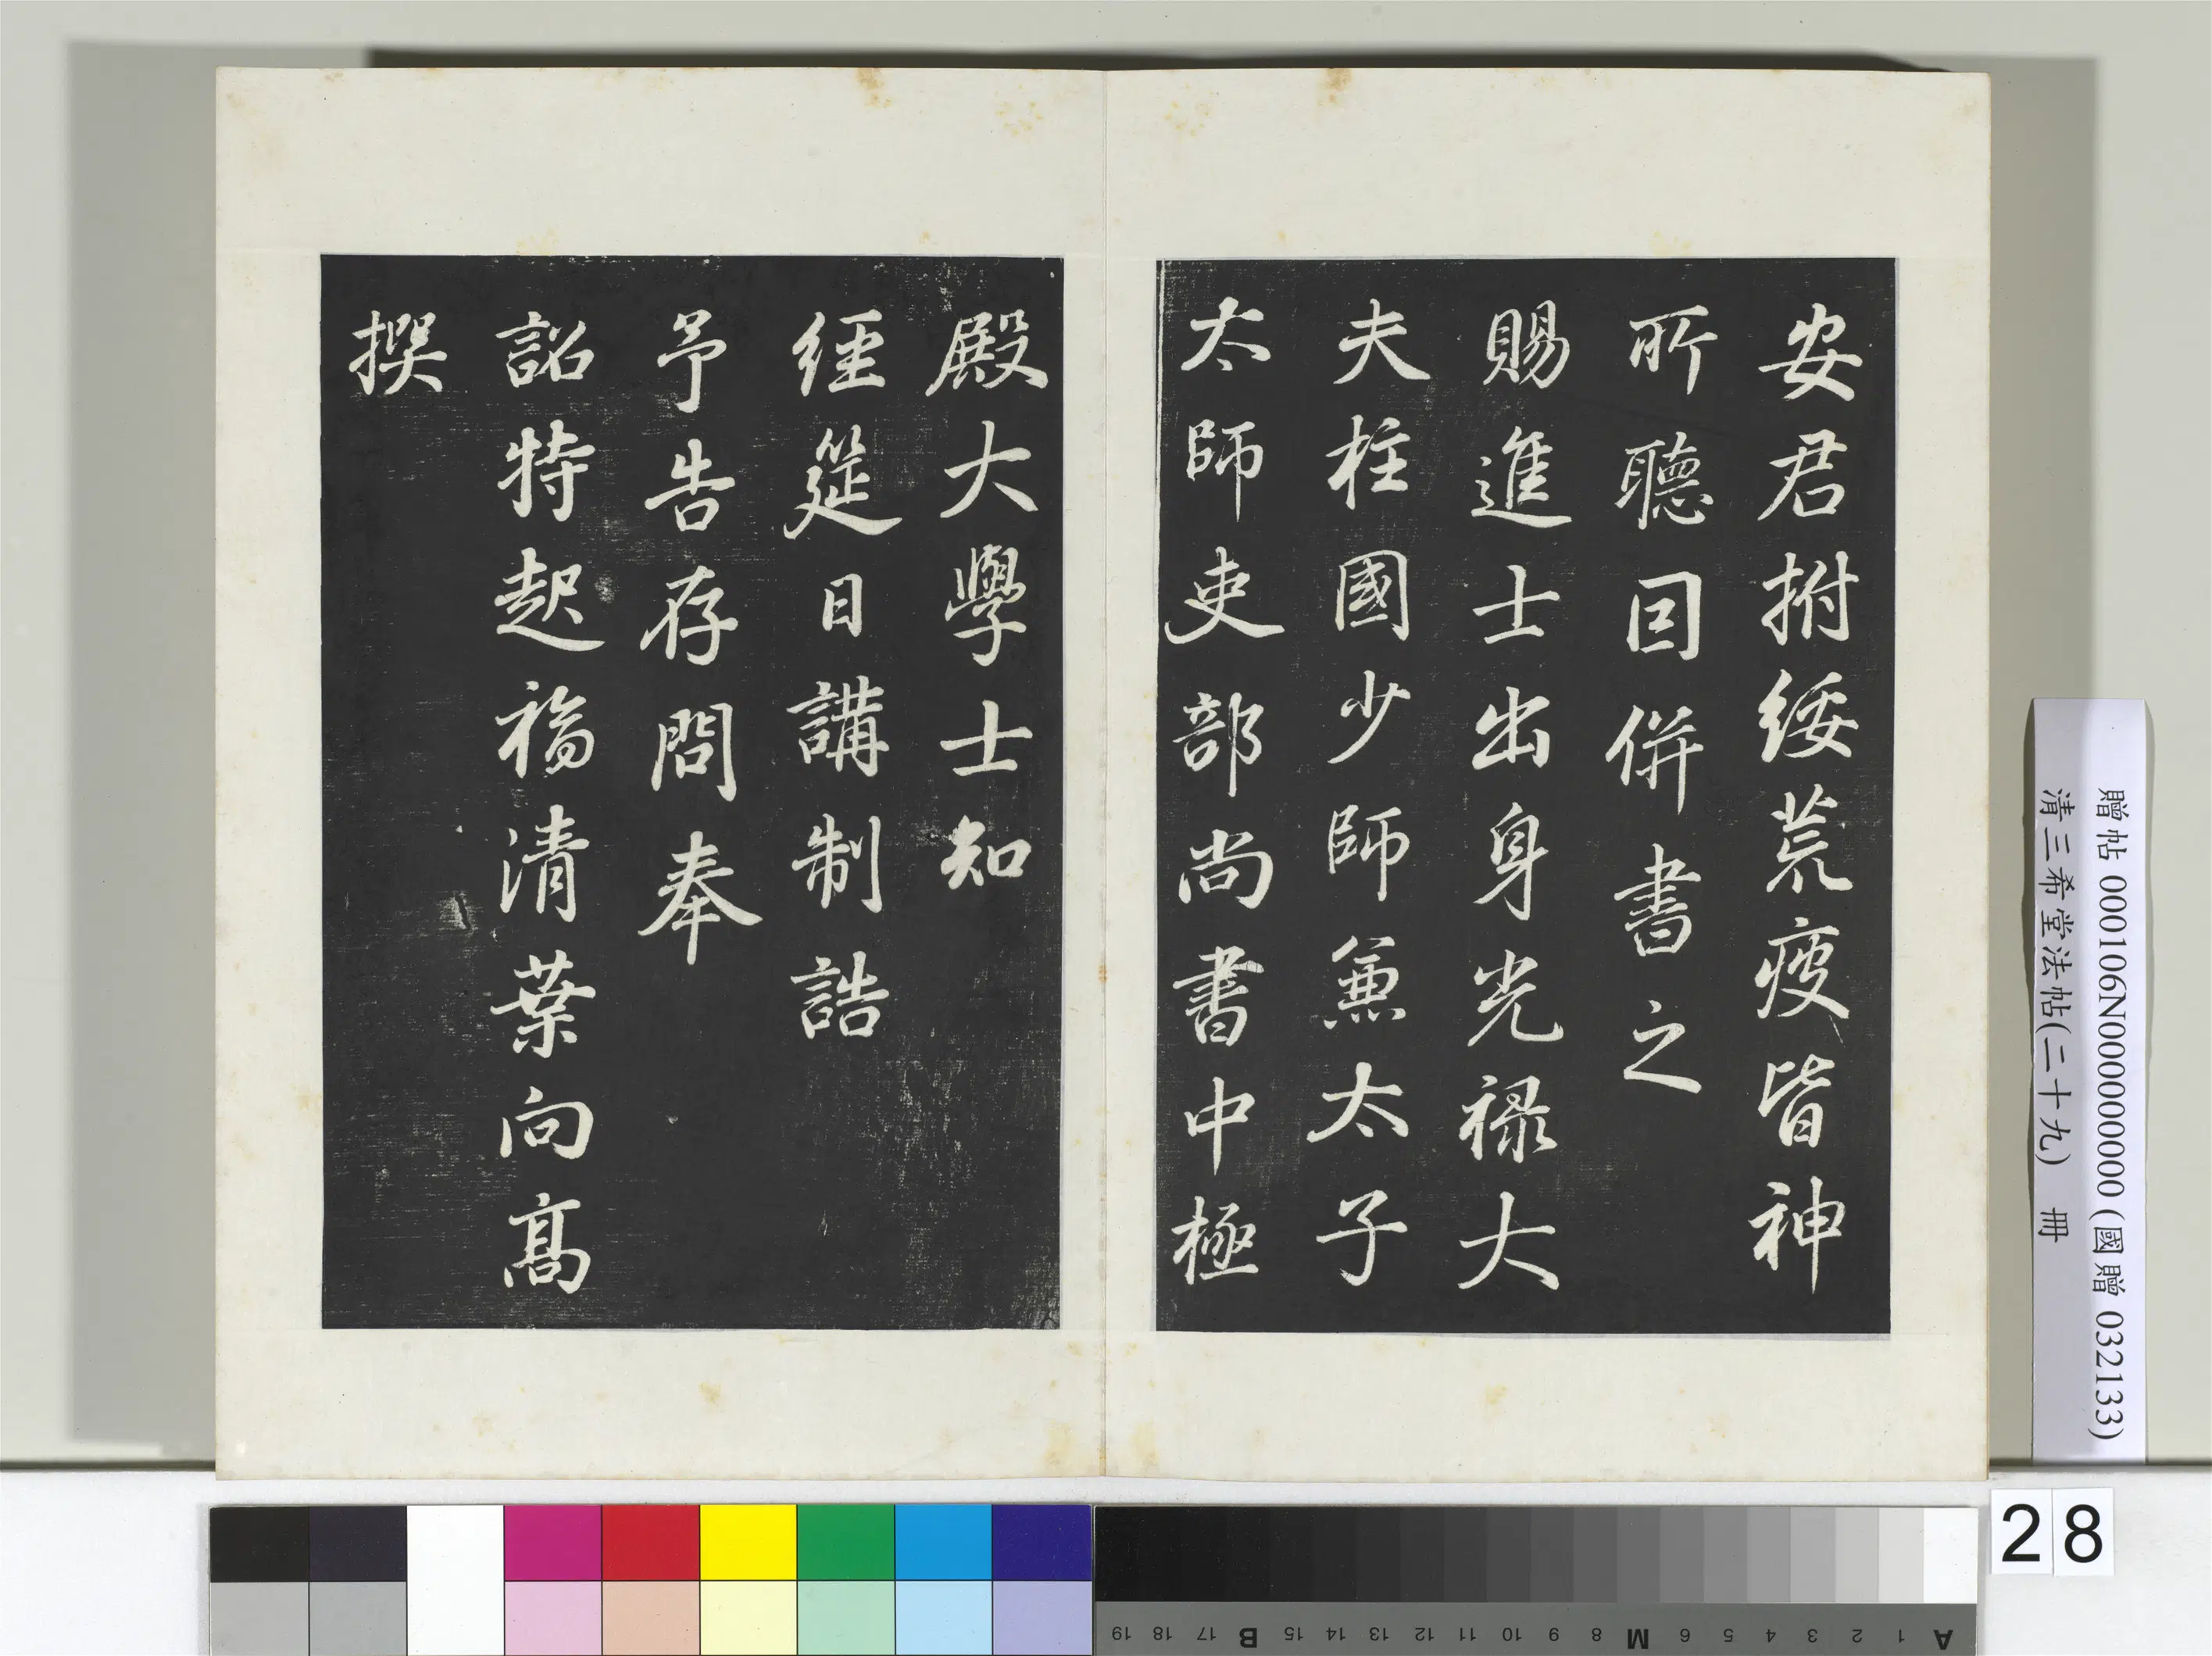 安君拊綏荒疫皆神
所聽因併書之
賜進士出身光祿大
夫柱國少師兼太子
太師吏部尚書中極
殿大學士知
經筵日講制誥
予告存問奉
詔特起福清葉向高
撰
贈帖 000106N000000000 (國贈 032133)
清三希堂法帖(二十九) 冊
28
A 1 2 3 4 5 6 M 8 9 10 11 12 13 14 15 B 17 18 19